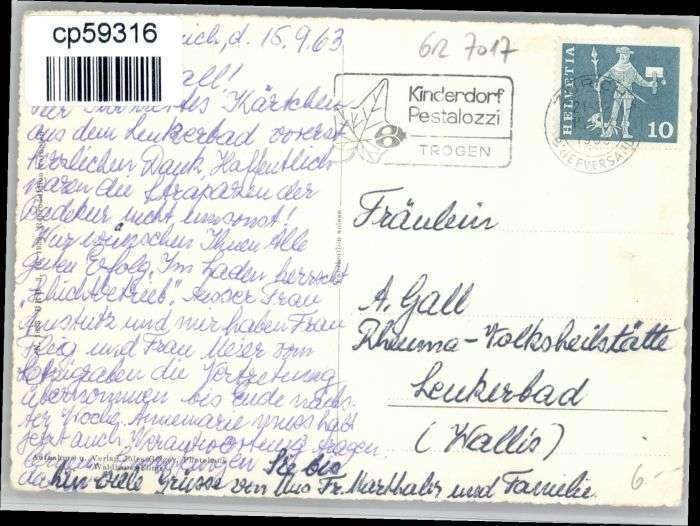 cp59316
ich, d. 15.9.63
all!
Kärtchen
aus dem Leukerbad vorerst
herzlichen Dank. Hoffentlich
waren die Strapazen der
Badekur nicht umsonst!
Wir wünschen Ihnen Alle
guten Erfolg. Im Laden herrscht
"Schichtbetrieb". Ausser Frau
Amstutz und mir haben Frau
Fleig und Frau Meier vom
die Vertretung
übernommen bis Ende näch-
ster Woche. Annemarie muss halt
jetzt auch Verantwortung tragen
Sie bis
dahin viele Grüsse von Uns Fr. Marthaler und Familie.
GR 7017
Kinderdorf
Pestalozzi
TROGEN
HELVETIA
10
BRIEFVERSAND
Fräulein
A. Gall
Rheuma-Volksheilstätte
Leukerbad
(Wallis)
6.-